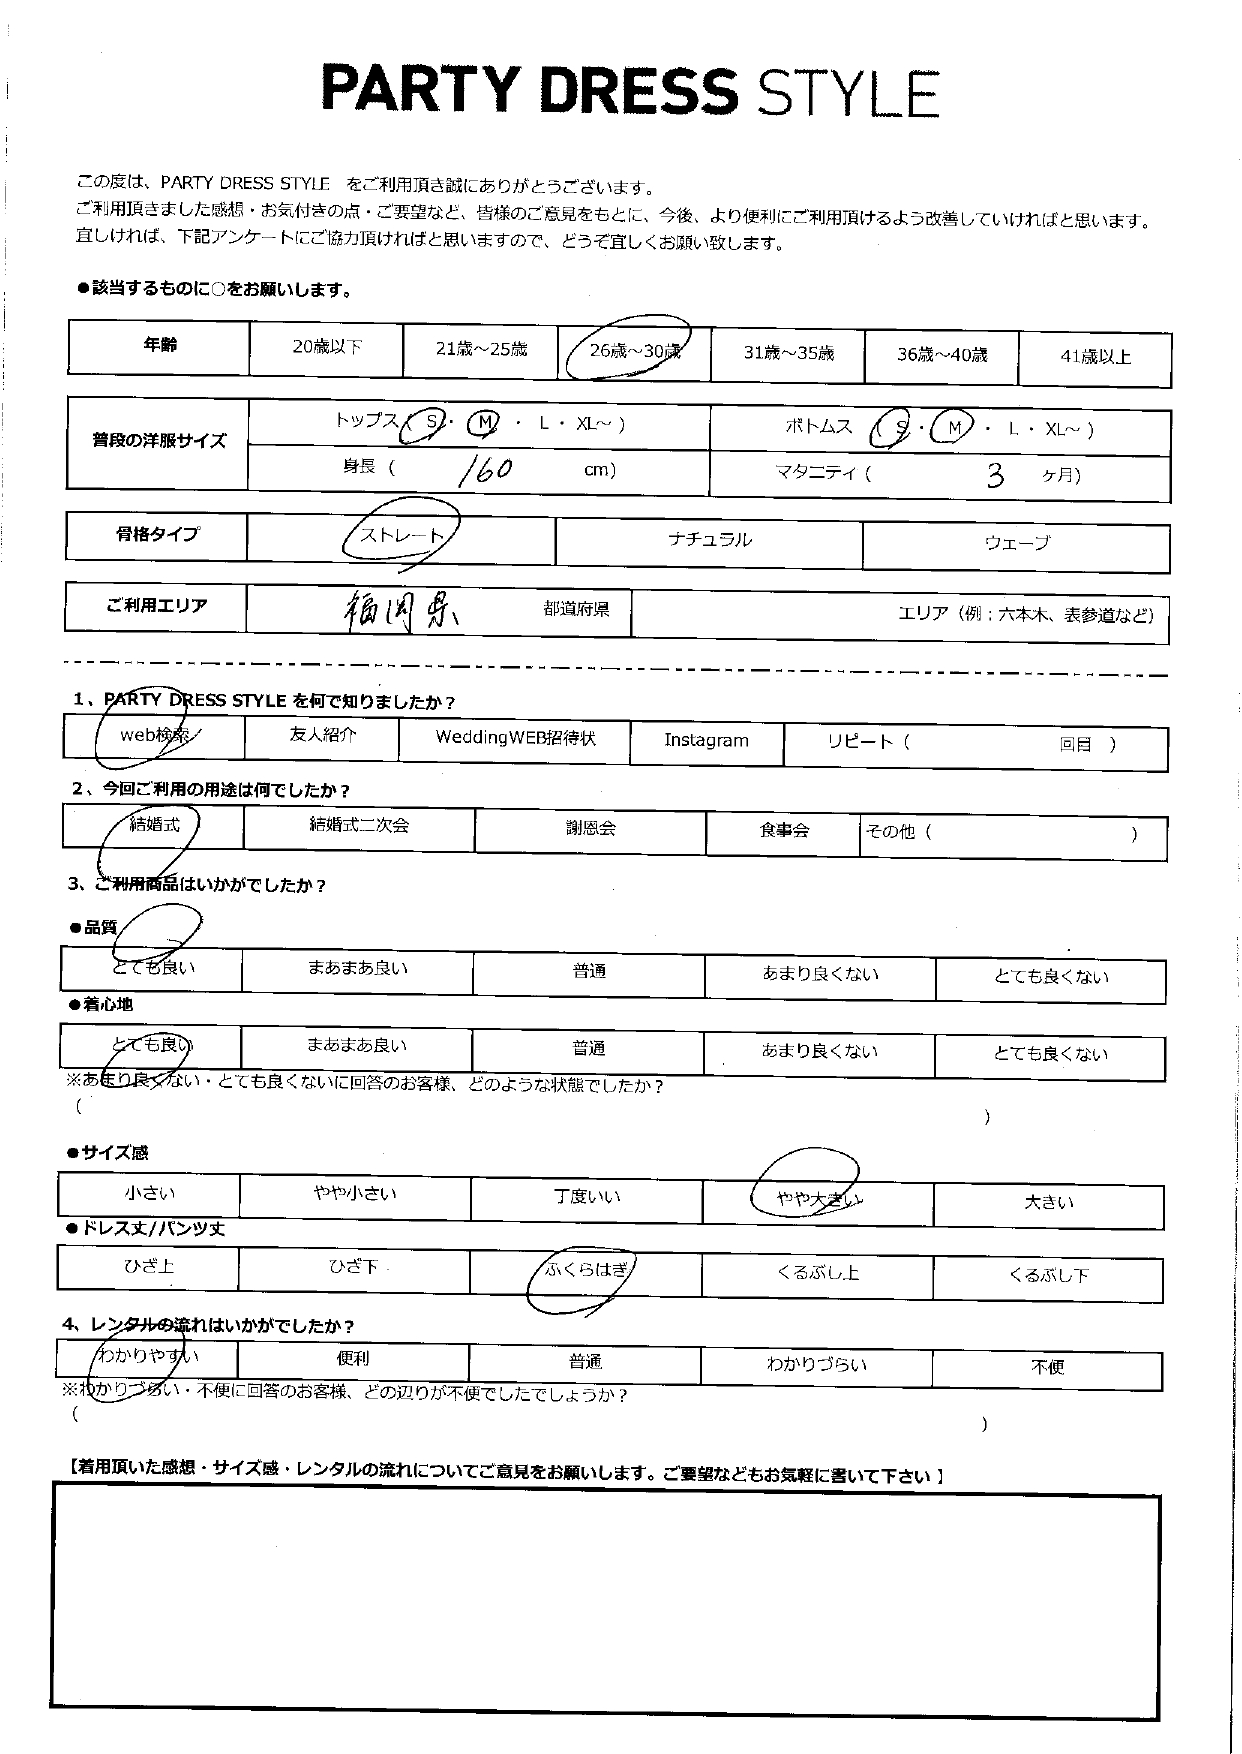 PARTY DRESS STYLE
この度は、PARTY DRESS STYLE をご利用頂き誠にありがとうございます。
ご利用頂きました感想・お気付きの点・ご要望など、皆様のご意見をもとに、今後、より便利にご利用頂けるよう改善していければと思います。
宜しければ、下記アンケートにご協力頂ければと思いますので、どうぞ宜しくお願い致します。
●該当するものに○をお願いします。
年齢 20歳以下 21歳～25歳 26歳～30歳 31歳～35歳 36歳～40歳 41歳以上
普段の洋服サイズ トップス( S・ M ・ L・XL～ ) ボトムス ( S ・ M ・ L・XL～ )
身長 ( 160 cm) マタニティ ( 3 ヶ月)
骨格タイプ ストレート ナチュラル ウェーブ
ご利用エリア 福岡県 都道府県 エリア（例：六本木、表参道など）
1、PARTY DRESS STYLE を何で知りましたか？
web検索 友人紹介 WeddingWEB招待状 Instagram リピート（ 回目 ）
2、今回ご利用の用途は何でしたか？
結婚式 結婚式二次会 謝恩会 食事会 その他（ ）
3、ご利用商品はいかがでしたか？
●品質
とても良い まあまあ良い 普通 あまり良くない とても良くない
●着心地
とても良い まあまあ良い 普通 あまり良くない とても良くない
※あまり良くない・とても良くないに回答のお客様、どのような状態でしたか？
（ ）
●サイズ感
小さい やや小さい 丁度いい やや大きい 大きい
●ドレス丈/パンツ丈
ひざ上 ひざ下 ふくらはぎ くるぶし上 くるぶし下
4、レンタルの流れはいかがでしたか？
わかりやすい 便利 普通 わかりづらい 不便
※わかりづらい・不便に回答のお客様、どの辺りが不便でしたでしょうか？
（ ）
【着用頂いた感想・サイズ感・レンタルの流れについてご意見をお願いします。ご要望などもお気軽に書いて下さい】